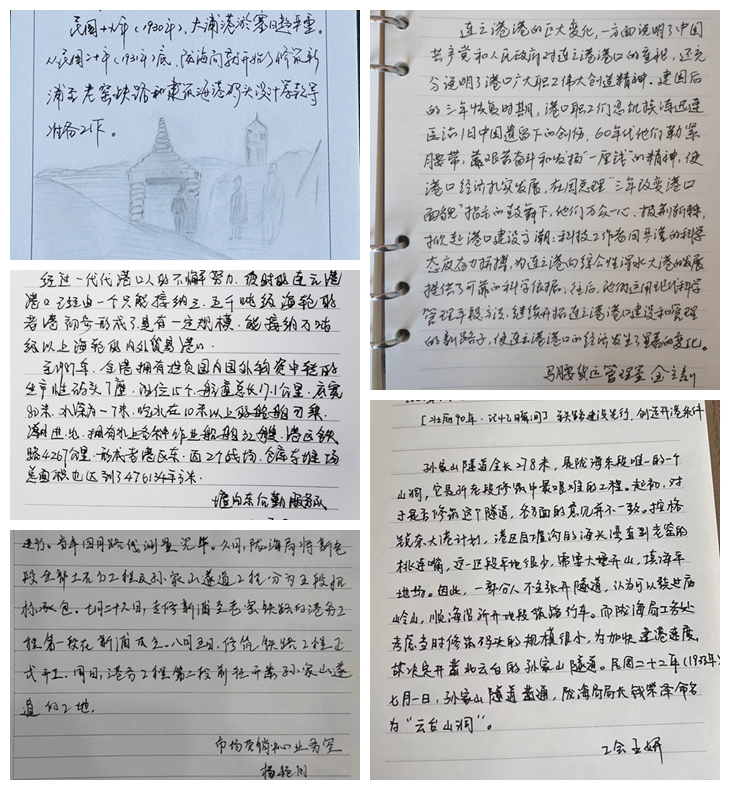 民国十九年(1930年),大浦港淤塞日趋严重。
从民国二十年(1931年)底,陇海局就开始了修筑新
浦至老窑铁路和建筑海港码头设计等款等
准备工作。
经过一代代港口人的不懈努力,彼时的连云港
港口已经由一个只能接纳三、五千吨级海轮的
港初步形成了具有一定规模、能接纳万吨
级以上海轮的内外贸易港口。
至1987年,全港拥有担负国内国外物资中转的
生产性码头7座,泊位15个,航道总长17.1公里,底宽
80米,水深为一7米,吃水在10米以上的船舶可乘
潮进出,拥有水上各种作业船舶32艘,港区铁
路42.67公里,形成老港区东、西2个站场,仓库与堆场
总面积也达到了476134平方米。
后勤服务队
进行。当年四月路线测量完毕。六月,陇海局将新老
段全部土石方工程及孙家山遂道工程分为五段招
标承包。七月二十八日,连修新浦至老窑铁路的港务工
程第一段在新浦成立。八月五日,修筑铁路工程正
式开工。同日,港务工程第二段前往开凿孙家山遂
道的工地。
市场营销中心业务室
杨艳阳
连云港港的巨大变化,一方面说明了中国
共产党和人民政府对连云港港口的重视,还充
分说明了港口广大职工伟大创造精神。建国后
的三年恢复时期,港口职工们忍饥挨冻迅速
医治旧中国遗留下的创伤,60年代他们勒紧
腰带,艰苦奋斗和发扬“一厘钱”的精神,使
港口经济扎实发展,在周总理“三年改变港口
面貌”指示的鼓舞下,他们万众一心、披荆斩棘,
掀起港口建设高潮:科技工作者同寻港的科学
态度奋力拼搏,为连云港向综合性深水大港的发展
提供了可靠的科学依据。往后,他们运用现代科学
管理手段方法,继续开拓连云港港口建设和管理
的新路子,使连云港港口的经济发生了显著的变化。
马腰货运管理室
[壮丽90年·记忆瞬间] 铁路建设先行,创连开港条件
孙家山隧道全长278米,是陇海东段唯一的一个
山洞,它是所花段修筑中最艰难的工程。起初,对
于是否修筑这个隧道,各方面的意见并不一致。按修
筑东大港计划,港区自墟沟的海头湾直到老窑的
桃连嘴,这一区段平地很少,需要大爆开山,填海平
地场。因此,一部分人不主张开隧道,认为可以绕过后
岭山,顺海沿所开地段筑路行车。而陇海局工务处
考虑当时修筑码头的规模很小,为加快建港速度,
故决定开凿北云台的孙家山隧道。民国二十二年(1933年)
七月一日,孙家山隧道凿通,陇海局局长钱宗泽命名
为“云台山洞”。
工会 王妍